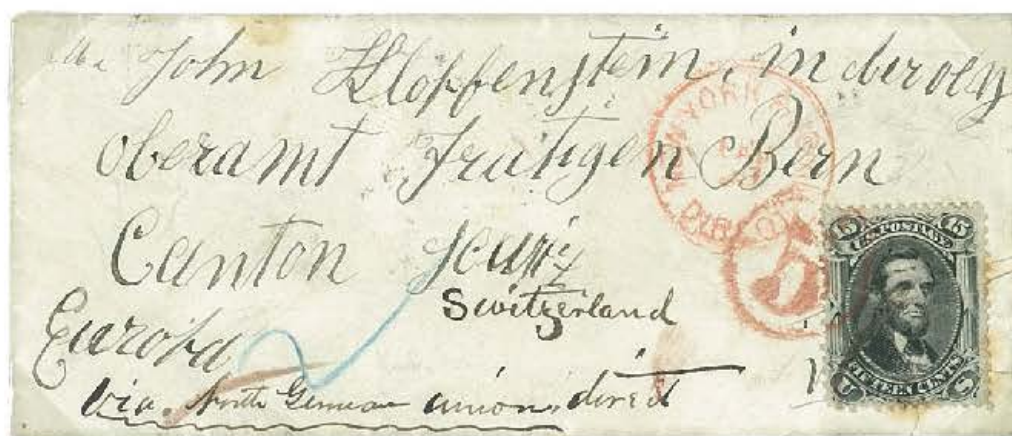 John Klopfenstein, in der oey
oberamt Frutigen Bern
Canton
Switzerland
Europa
via North German union direct
NEW YORK
PAID
DIRECT
5
15 15
U.S. POSTAGE
FIFTEEN CENTS